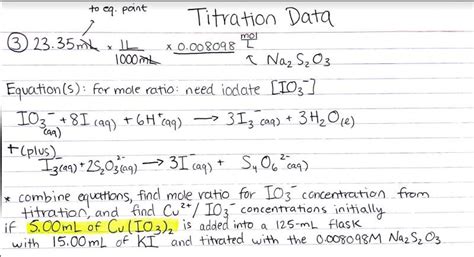 to eq. point
Titration Data
③ 23.35mL × 1L/1000mL × 0.008098 mol/L
↖ Na₂S₂O₃
Equation(s): for mole ratio: need iodate [IO₃⁻]
IO₃⁻(aq) + 8I⁻(aq) + 6H⁺(aq) → 3I₃⁻(aq) + 3H₂O(l)
+(plus)
I₃⁻(aq) + 2S₂O₃²⁻(aq) → 3I⁻(aq) + S₄O₆²⁻(aq)
* combine equations, find mole ratio for IO₃⁻ concentration from
titration, and find Cu²⁺/IO₃⁻ concentrations initially
if 5.00mL of Cu(IO₃)₂ is added into a 125-mL flask
with 15.00mL of KI and titrated with the 0.008098M Na₂S₂O₃.